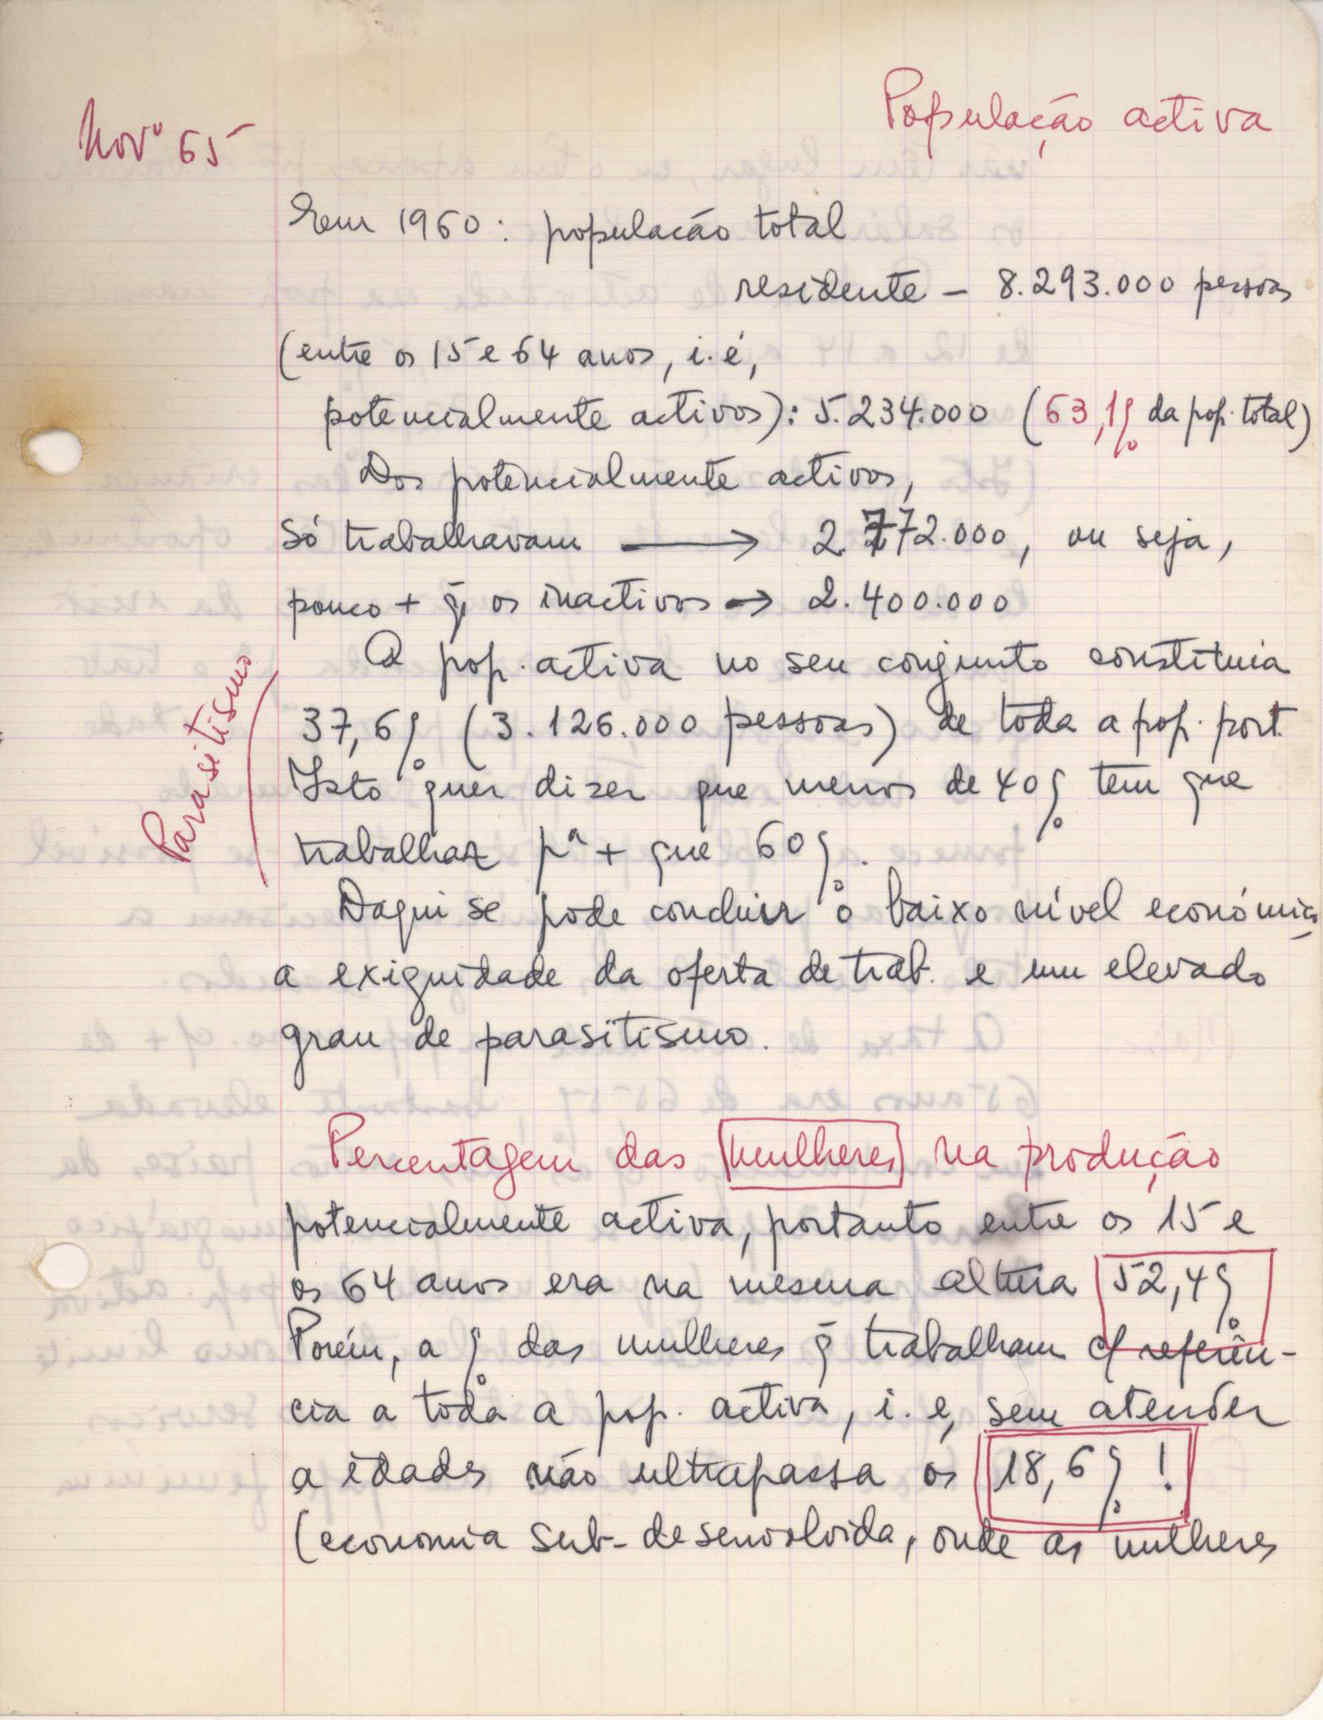 Novº 65
População activa
Em 1960: população total
residente - 8.293.000 pessoas
(entre os 15 e 64 anos, i. é,
potencialmente activos): 5.234.000 (63,1% da pop. total)
Dos potencialmente activos,
só trabalhavam → 2.772.000, ou seja,
pouco + q̃ os inactivos → 2.400.000
A pop. activa no seu conjunto constituia
37,6% (3.126.000 pessoas) de toda a pop. port.
Isto quer dizer que menos de 40% tem que
trabalhar pª + que 60%.
Parasitismo
Daqui se pode concluir o baixo nível económico,
a exiguidade da oferta de trab. e um elevado
grau de parasitismo.
Percentagem das mulheres na produção
potencialmente activa, portanto entre os 15 e
os 64 anos era na mesma altura 52,4%
Porém, a % das mulheres q̃ trabalham c/ referên-
cia a toda a pop. activa, i. e, sem atender
a idades não ultrapassa os 18,6% !
(economia sub-desenvolvida, onde as mulheres